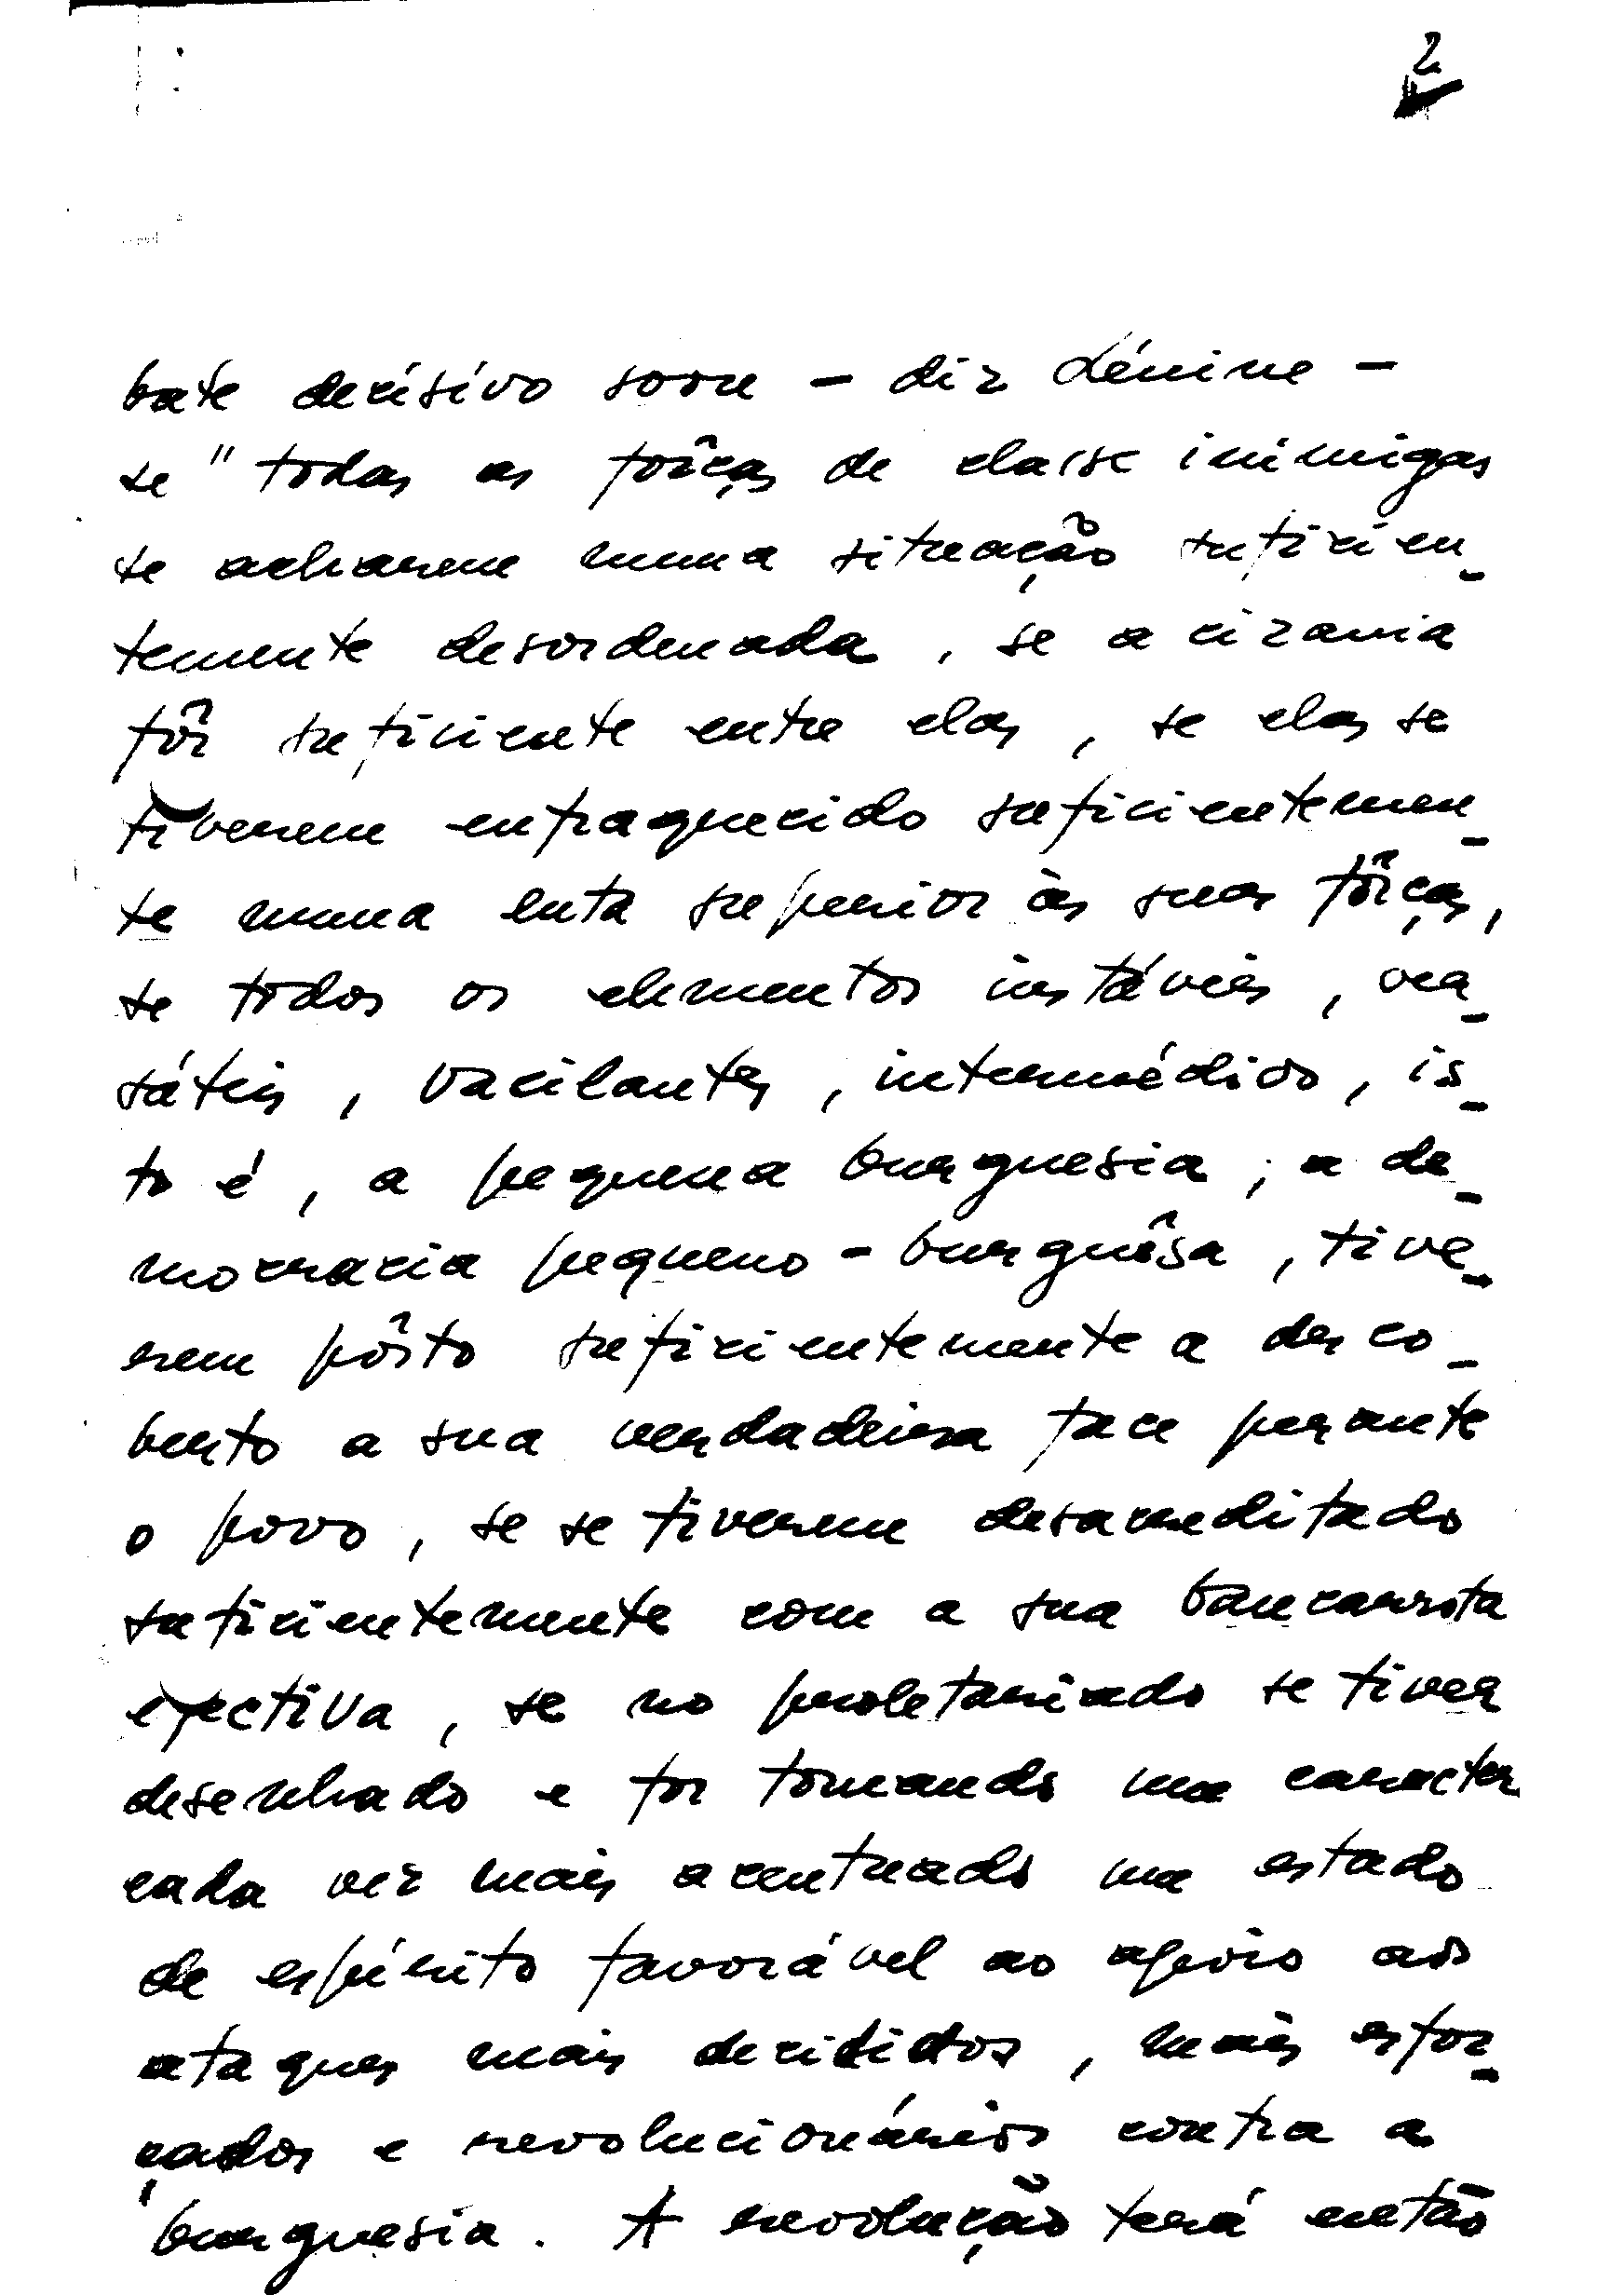 2
bate decisivo sobre – diz Lénine –
se " todas as fôrças de classe inimigas
se acharem numa situação suficien-
temente desordenada, se a cizania
fôr suficiente entre elas, se elas se
tiverem enfraquecido suficientemen-
te numa luta superior às suas fôrças,
se todos os elementos instáveis, ver-
sáteis, vacilantes, intermédios, is-
to é, a pequena burguesia, a de-
mocracia pequeno-burguêsa, tive-
rem pôsto suficientemente a desco-
berto a sua verdadeira face perante
o povo, se se tiverem desacreditado
suficientemente com a sua bancarrota
efectiva, se no proletariado se tiver
desenhado e for tomando um caracter
cada vez mais acentuado um estado
de espírito favorável ao apoio aos
ataques mais decididos, mais esfor-
çados e revolucionários contra a
burguesia. A revolução terá então